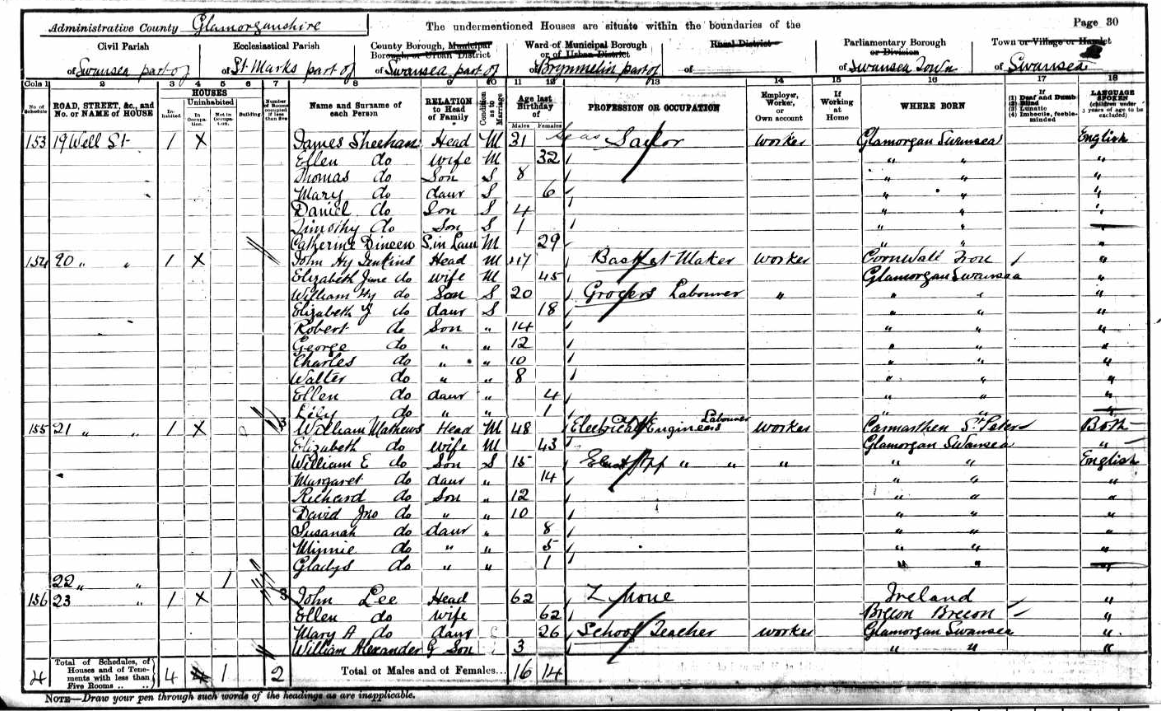 Administrative County Glamorganshire The undermentioned Houses are situate within the boundaries of the Page 30
Civil Parish Ecclesiastical Parish County Borough, Municipal Borough, or Urban District Ward of Municipal Borough or of Urban District Rural District Parliamentary Borough or Division Town or Village or Hamlet
of Swansea part of of St Marks part of of Swansea part of of Brynmelin part of of of Swansea Town of Swansea
Cols 1 2 3 4 5 6 7 8 9 10 11 12 13 14 15 16 17 18
No. of Schedule ROAD, STREET, &c., and No. or NAME of HOUSE HOUSES Inhabited Uninhabited In Occupation Not in Occupation Building Number of Rooms occupied if less than five Name and Surname of each Person RELATION to Head of Family Condition as to Marriage Age last Birthday of Males Females PROFESSION OR OCCUPATION Employer, Worker, or Own account If Working at Home WHERE BORN If (1) Deaf and Dumb (2) Blind (3) Lunatic (4) Imbecile, feeble-minded LANGUAGE SPOKEN (children under 3 years of age to be excluded)
153 19 Well St 1 X James Sheehan Head M 31 Seas Sailor worker Glamorgan Swansea English
Ellen do wife M 32 " " "
Thomas do Son S 8 " " "
Mary do daur S 6 " " "
Daniel do Son S 4 " " "
Timothy do Son S 1 " "
Catherine Dineen S. in Law M 29 " " "
154 20 " " 1 X John Hy Jenkins Head M 47 Basket Maker worker Cornwall "
Elizabeth Jane do wife M 45 Glamorgan Swansea "
William Hy do Son S 20 Grocers Labourer " " " "
Elizabeth J do daur S 18 " " "
Robert do Son " 14 " " "
George do " " 12 " " "
Charles do " " 10 " " "
Walter do " " 8 " " "
Ellen do daur " 4 " " "
Lily do " " 1 " "
155 21 " " 1 X 3 William Mathews Head M 48 Electrical Engineers Labourer worker Carmarthen St Peters Both
Elizabeth do wife M 43 Glamorgan Swansea "
William E do Son S 15 " " " " " English
Margaret do daur " 14 " " "
Richard do Son " 12 " " "
David Jno do " " 10 " " "
Susanah do daur " 8 " " "
Minnie do " " 5 " " "
Gladys do " " 1 " "
22 " " 1
156 23 " 1 X 3 John Lee Head 62 None Ireland "
Ellen do wife 62 Brecon Brecon "
Mary A do daur 26 School Teacher worker Glamorgan Swansea "
William Alexander G Son 3 " " "
4 Total of Schedules, of Houses and of Tenements with less than Five Rooms 4 1 2 Total of Males and of Females... 16 14
NOTE—Draw your pen through such words of the headings as are inapplicable.